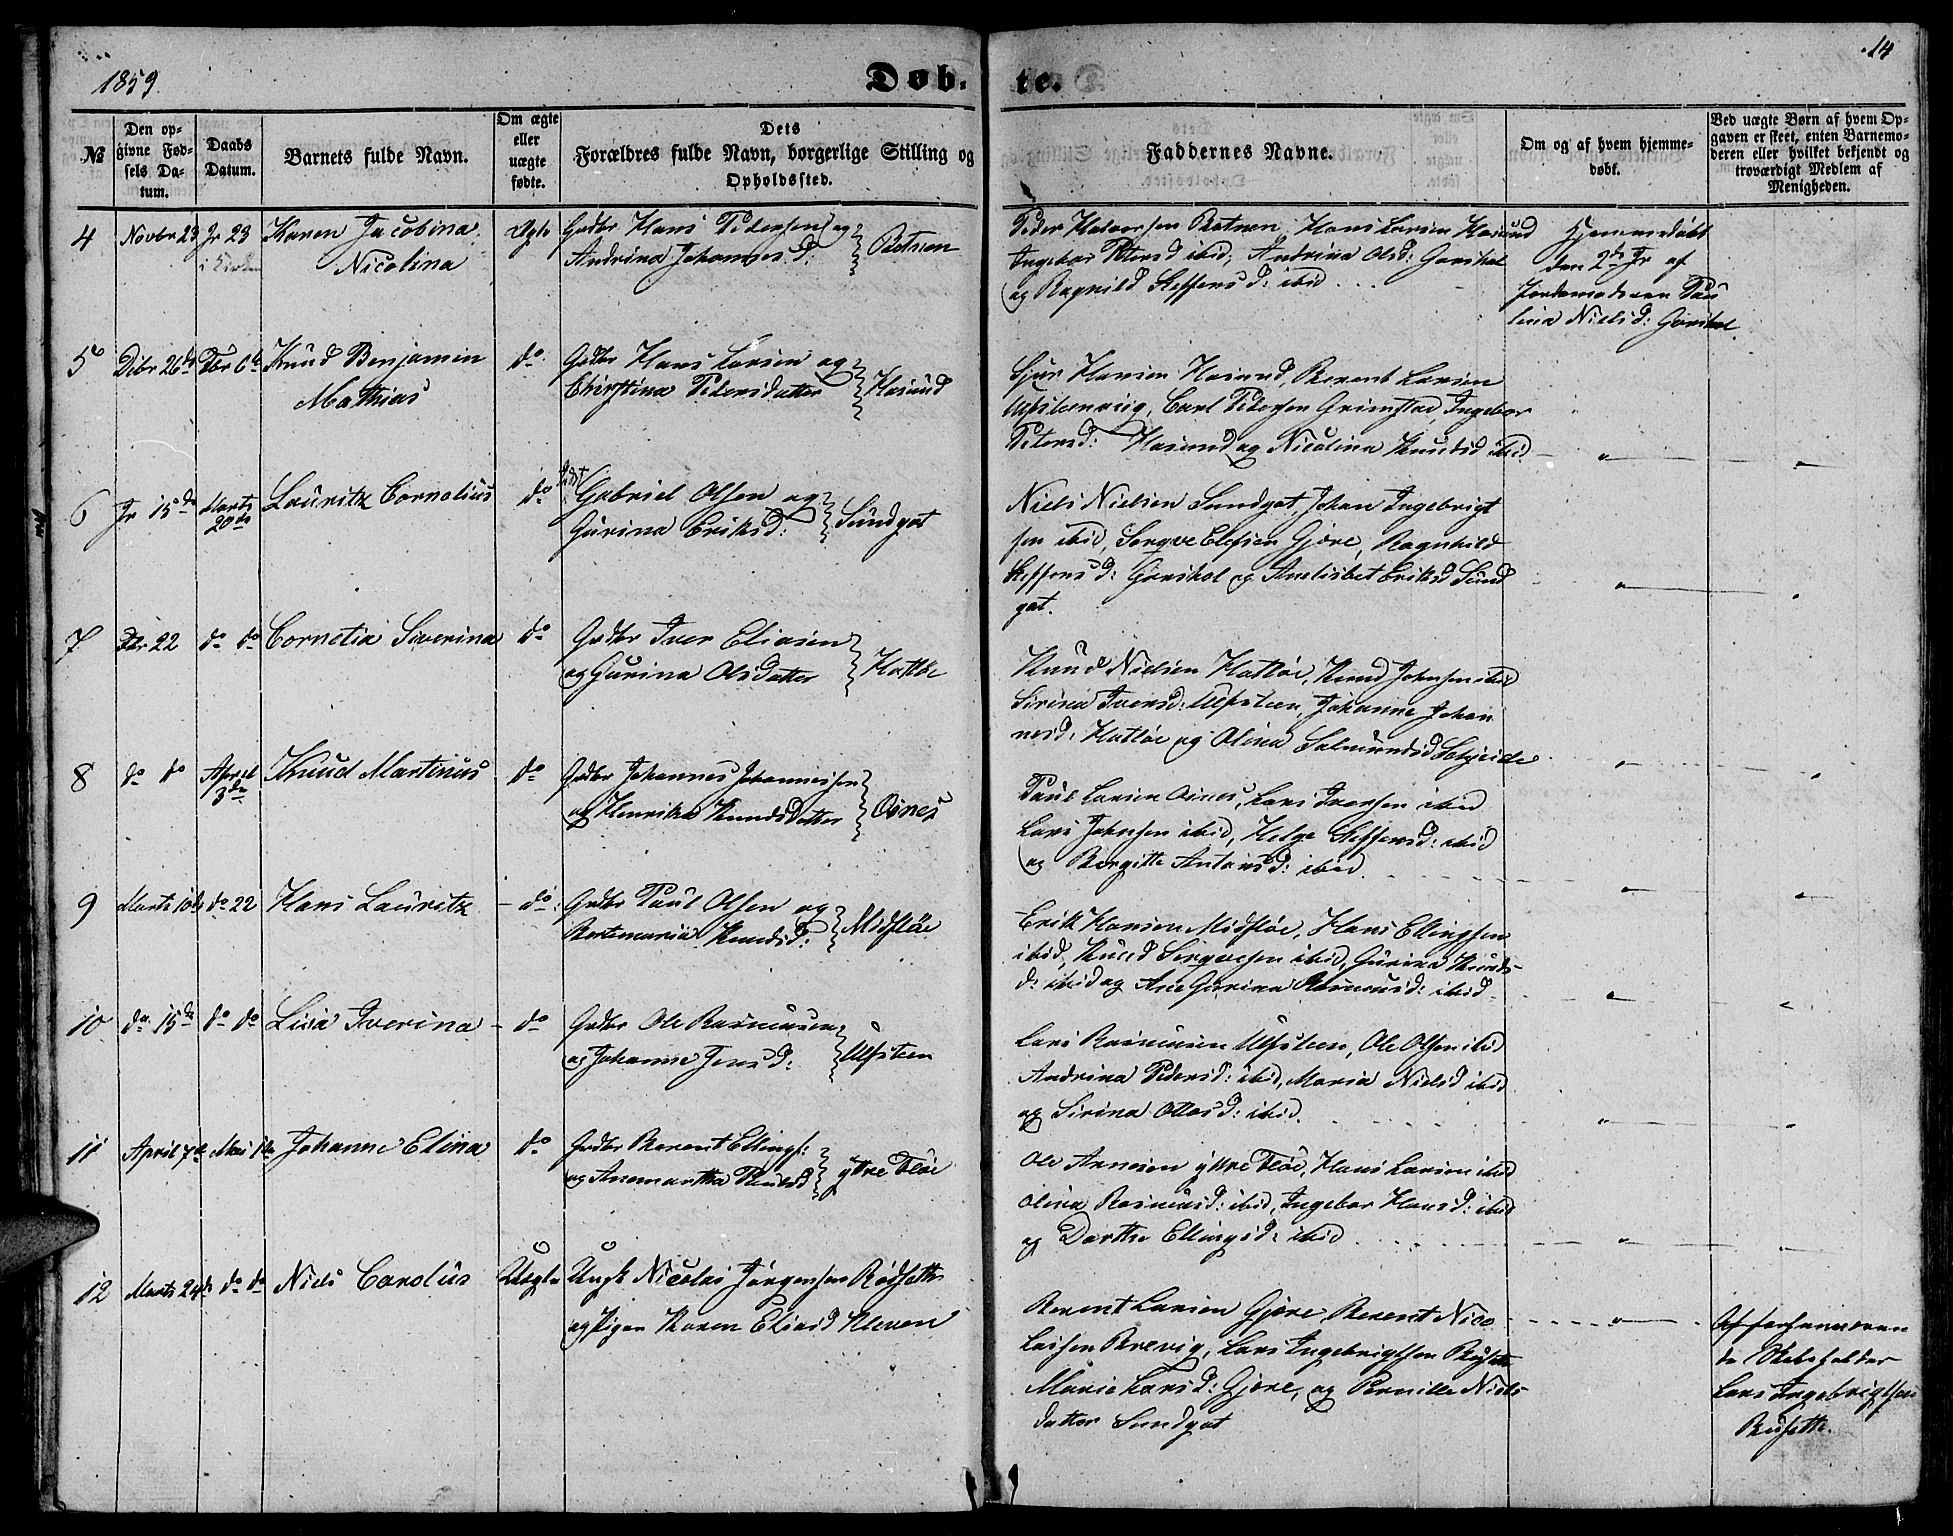 1859.
Døb-
te.
14
№
Den op-
givne Fød-
sels Da-
tum.
Daabs
Datum.
Barnets fulde Navn.
Om ægte
eller
uægte
fødte.
Dets
Forældres fulde Navn, borgerlige Stilling og
Opholdssted.
Faddernes Navne.
Om og af hvem hjemme-
døbt.
Ved uægte Børn af hvem Op-
gaven er skeet, enten Barnemo-
deren eller hvilket bekjendt og
troværdigt Medlem af
Menigheden.
4 Novbr 23 Jr 23 Karen Jacobina Ægte Gdbr Hans Pedersen og
i Kirken Nicolina Andrina Johannesd: Rotnem
Peder Halvorsen Rotnem, Hans Larsen Hasund
Ingebor Petersd ibid, Andrina Olsd: Garshol
og Ragnild Steffensd: ibid
Hjemmedøbt
den 2de Jr af
Jordemoderen Pau
lina Nielsd: Garshol
5 Dcbr 26de Fbr 6te Knud Benjamin do Gdbr Hans Larsen og
Mathias Christina Pedersdatter Hasund
Sjur Hansen Hasund, Berent Larsen
Ulfsteenvig, Carl Pedersen Grimstad, Ingebor
Petersd: Hasund og Nicolina Knudsd ibid
6 Jr 15de Marts 20de Lauritz Cornelius do Gabriel Olsen og
Gurina Eriksd: Sundgot
Niels Nielsen Sundgot, Johan Ingebrigt
sen ibid, Sergve Elefsen Gjøre, Ragnhild
Steffensd: Garshol og Anelisbet Eriksd Sund
got.
7 Fbr 22 do do Cornelia Severina do Gdbr Iver Eliasen
og Gurina Olsdatter Hatlöe
Knud Nielsen Hatlöe, Knud Johnsen ibid
Sirina Iversd: Ulfsteen, Johanne Johan
nesd: Hatlöe og Olina Salmundsd
8 do do April 3de Knud Martinus do Gdbr Johannes Johannessen
og Henrika Knudsdatter Osnes
Paul Larsen Osnes, Lars Iversen ibid
Lars Johnsen ibid, Helge Steffensd: ibid
og Bergitte Antonsd: ibid.
9 Marts 10de do 22 Hans Lauritz do Gdbr Paul Olsen og
Bertemaria Knudsd: Midflöe
Erik Hansen Midflöe, Hans Ellingsen
ibid, Knud Sergvesen ibid, Gurina Knuds-
d: ibid og Ane Gurina Rasmusd: ibid
10 do 15de do do Lisa Iverina do Gdbr Ole Rasmusen
og Johanne Jensd: Ulfsteen
Lars Rasmusen Ulfsteen, Ole Olsen ibid
Andrina Pedersd: ibid, Maria Nielsd ibid
og Sirina Ottosd: ibid.
11 April 7de Mai 1de Johanne Elina do Gdbr Berent Ellings:
og Anemartha Knudsd ytre Flöe
Ole Arnesen ytre Flöe, Hans Larsen ibid
Olina Rasmusd: ibid, Ingebor Hansd: ibid
og Dorthe Ellingsd: ibid
12 Marts 24de do do Niels Carolus Uægte Ungk Nicolai Jörgensen Rödsette
og Pigen Karen Eliasd Kleven
Berent Larsen Gjøre, Berent Nico
laisen Brevig, Lars Ingebrigtsen Rusette
Marie Larsd: Gjøre, og Pernille Niels-
datter Sundgot
Af forhenværen
de Skoleholder
Lars Ingebrigtsen
Rusette.